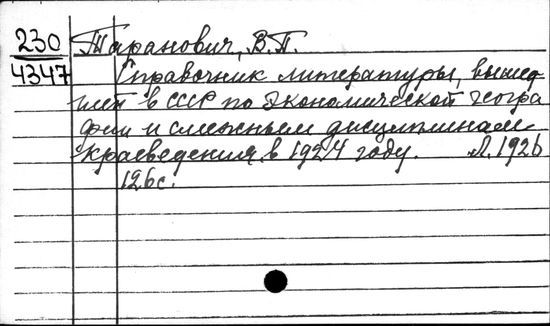 230 Таранович, В.П.
4347 Справочник литературы, вышед-
шей в СССР по экономической геогра
фии и смежным дисциплинам
краеведения, в 1924 году. Л. 1926
126 с.